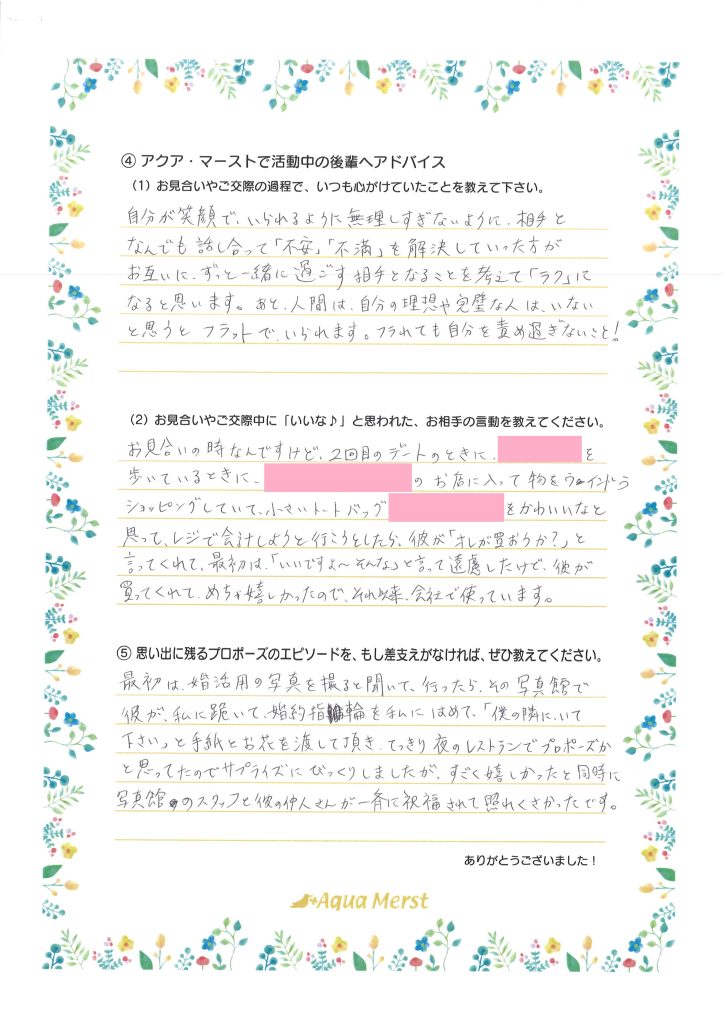 ④ アクア・マーストで活動中の後輩へアドバイス
（1）お見合いやご交際の過程で、いつも心がけていたことを教えて下さい。
自分が笑顔で、いられるように無理しすぎないように、相手と
なんでも話し合って「不安」「不満」を解決していった方が
お互いに、ずっと一緒に過ごす相手となることを考えて「ラク」に
なると思います。あと、人間は、自分の理想や完璧な人は、いない
と思うと フラットで、いられます。フラれても自分を責め過ぎないこと！
（2）お見合いやご交際中に「いいな♪」と思われた、お相手の言動を教えてください。
お見合いの時なんですけど、2回目のデートのときに、を
歩いているときに、のお店に入って物をウィンドウ
ショッピングしていて、小さいトートバッグをかわいいなと
思って、レジで会計しようと行こうとしたら、彼が「オレが買おうか？」と
言ってくれて、最初は、「いいですよ〜そんな」と言って遠慮したけど、彼が
買ってくれて、めちゃ嬉しかったので、それ以来、会社で使っています。
⑤ 思い出に残るプロポーズのエピソードを、もし差支えがなければ、ぜひ教えてください。
最初は、婚活用の写真を撮ると聞いて、行ったら、その写真館で
彼が、私に跪いて、婚約指輪を私にはめて、「僕の隣に、いて
下さい」と手紙とお花を渡して頂き、てっきり夜のレストランでプロポーズか
と思ってたのでサプライズにびっくりしましたが、すごく嬉しかったと同時に
写真館のスタッフと彼の仲人さんが一斉に祝福されて照れくさかったです。
ありがとうございました！
Aqua Merst